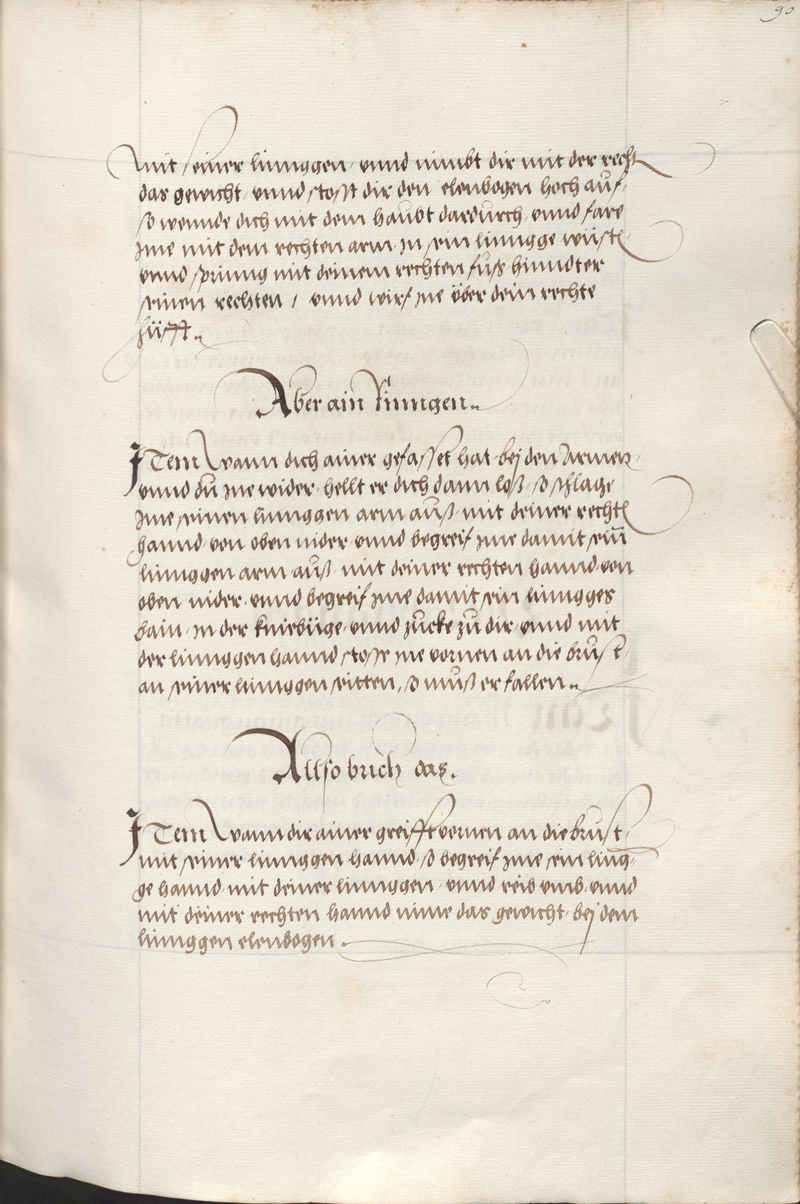 90
mit seiner linnggen, vnnd nimbt dir mit der recht
das gewicht, vnnd stosst dir den elenbogen hoch auf,
so wennde dich mit dem haubt dardurch, vnnd fare
jme mit dem rechten arm in sein linngge
vnnd sprinng mit deinem rechten fuß hinndter
seinen rechten / vnnd wirf jne über dein rechte
hüfft.
Aber ain Rinngen.
JTem Wann dich ainer gefasset hat, bej den Armen,
vnnd du jne wider, hellt er dich dann loß, so schlage
jme seinen linnggen arm auß, mit deiner rechtn
hannd, von oben nider, vnnd begreif jme damit sein
linnggen arm auß, mit deiner rechten hannd, von
oben nider, vnnd begreif jme damit sein linngges
bain, in der kniebüge, vnnd zucke zu dir, vnnd mit
der linnggen hannd stosse jne vornen an die brust,
an seiner linnggen seitten, so muß er fallen.
Allso brich das.
JTem Wann dir ainer greifft vornen an die brust,
mit seiner linnggen hannd, so begreif jme sein ling-
ge hannd, mit deiner linnggen, vnnd reib vmb, vnnd
mit deiner rechten hannd nime das gewicht, bej dem
linnggen elenbogen.